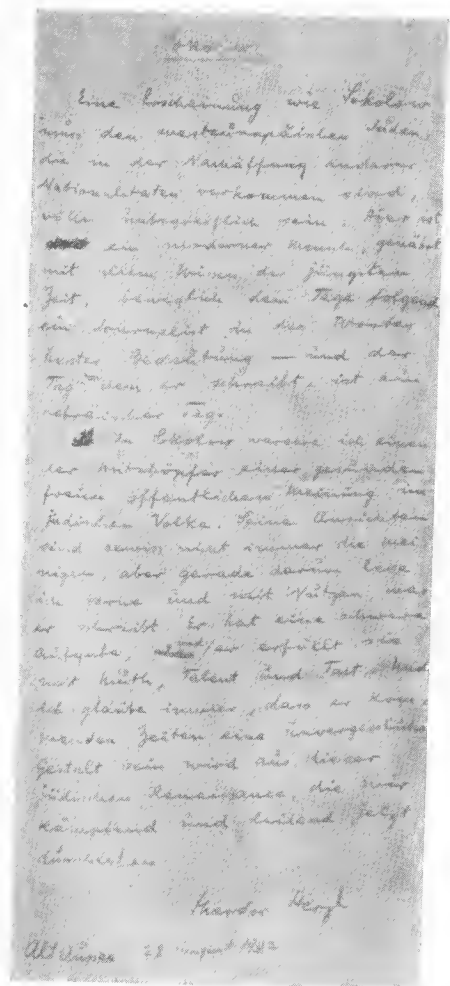 Sokolow
Eine Erscheinung wie Sokolow
muss den westeuropäischen Juden,
die in der Nachäffung anderer
Nationalitäten verkommen sind,
völlig unbegreiflich sein. Aber ist
ein moderner Mensch, genährt
mit allem Wissen der jüngsten
Zeit, beweglich dem Tage folgend
ein Journalist in des Wortes
bester Bedeutung — und der
Tag dem er schreibt, ist ein
hebräischer Tag.
In Sokolow verehre ich einen
der Mitschöpfer einer gesunden
freien öffentlichen Meinung im
jüdischen Volke. Seine Ansichten
sind gewiss nicht immer die mei
nigen, aber gerade darum lese
ich gerne und mit Nutzen, was
er schreibt. Er hat eine schwere
Aufgabe, und er erfüllt sie
mit Muth, Talent und Tact. Und
ich glaube immer, dass er kom
menden Zeiten eine unvergessliche
Gestalt sein wird aus dieser
jüdischen Renaissance, die wir
kämpfend und leidend jetzt
Theodor Herzl
Alt Aussee 28 August